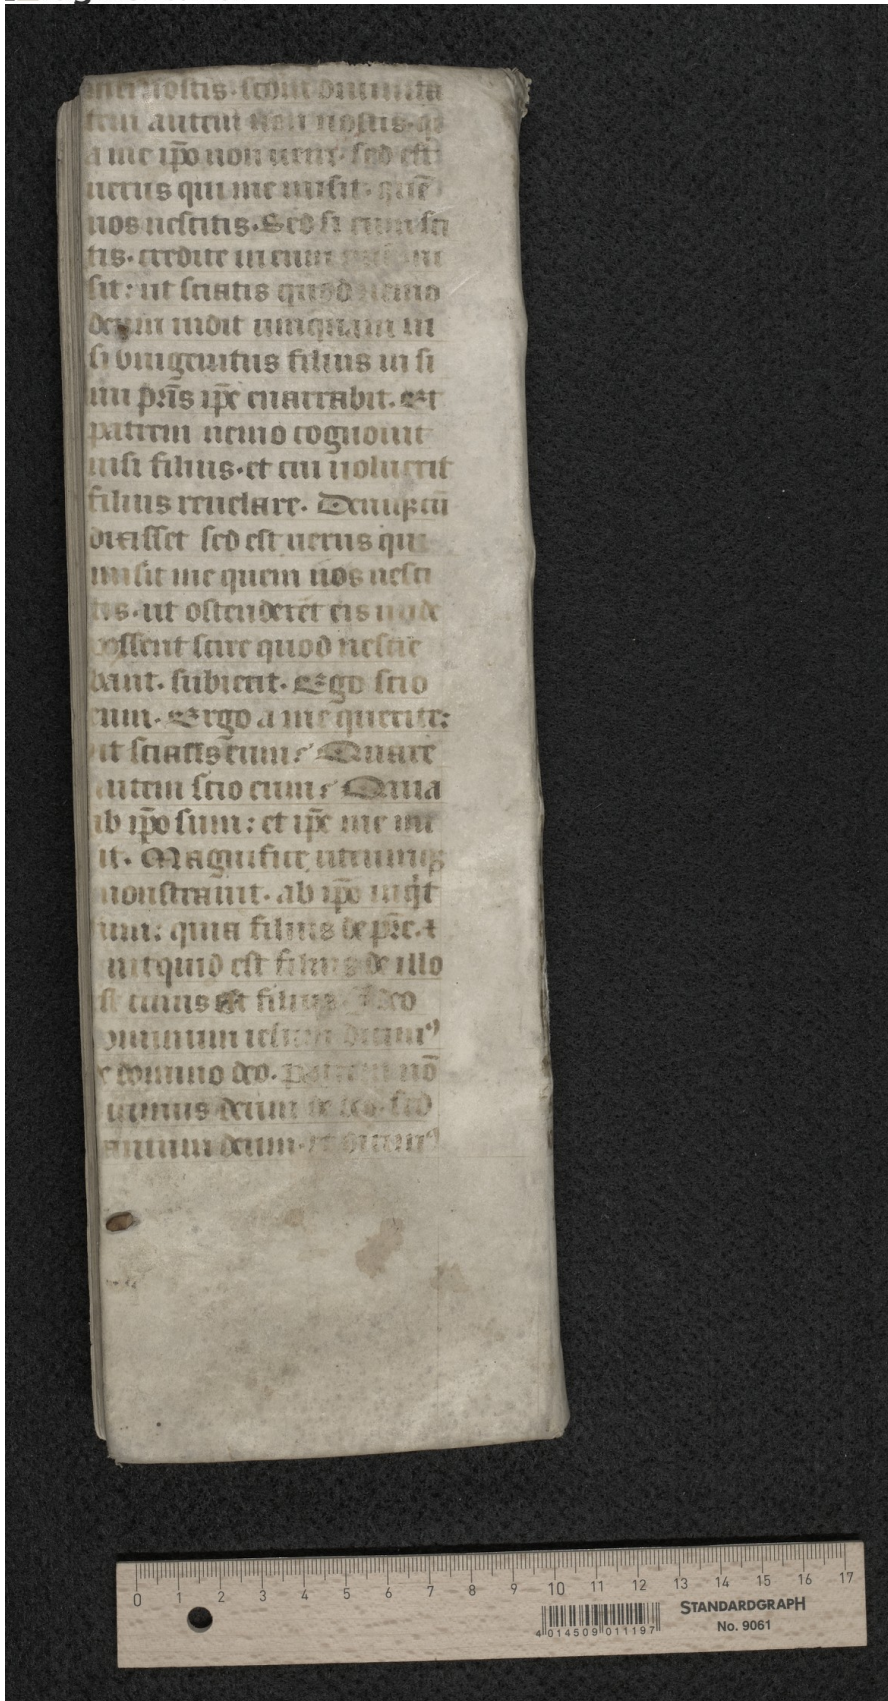 me nostis. secundum diuinita
tem autem non nostis. qr
a me ip̄o non ueni. sed est
uerus qui me misit. quē
uos nescitis. Sed si eum sci
tis. credite in eum
sit: ut sciatis quod nemo
deum uidit unquam ni
si vnigenitus filius in si
nu pr̄is ip̄e enarrabit. Et
patrem nemo cognouit
nisi filius. et cui uoluerit
filius reuelare. Deniqꝫ cū
dixisset sed est uerus qui
misit me quem uos nesci
tis. ut ostenderet eis unde
possent scire quod nescie
bant. subiecit. Ego scio
eum. Ergo a me querite:
ut sciatis eum. Quare
autem scio eum? Quia
ab ip̄o sum: et ip̄e me mi
it. Magnifice utrumqꝫ
monstrauit. ab ip̄o inq̇t
sum: quia filius de pr̄e. ⁊
quicquid est filius de illo
st cuius est filius. Ideo
ominum iesum dicimꝰ
e domino deo. patrem nō
icimus deum de deo. sed
antum deum. et dicimꝰ
0 1 2 3 4 5 6 7 8 9 10 11 12 13 14 15 16 17
4 014509 011197
STANDARDGRAPH
No. 9061